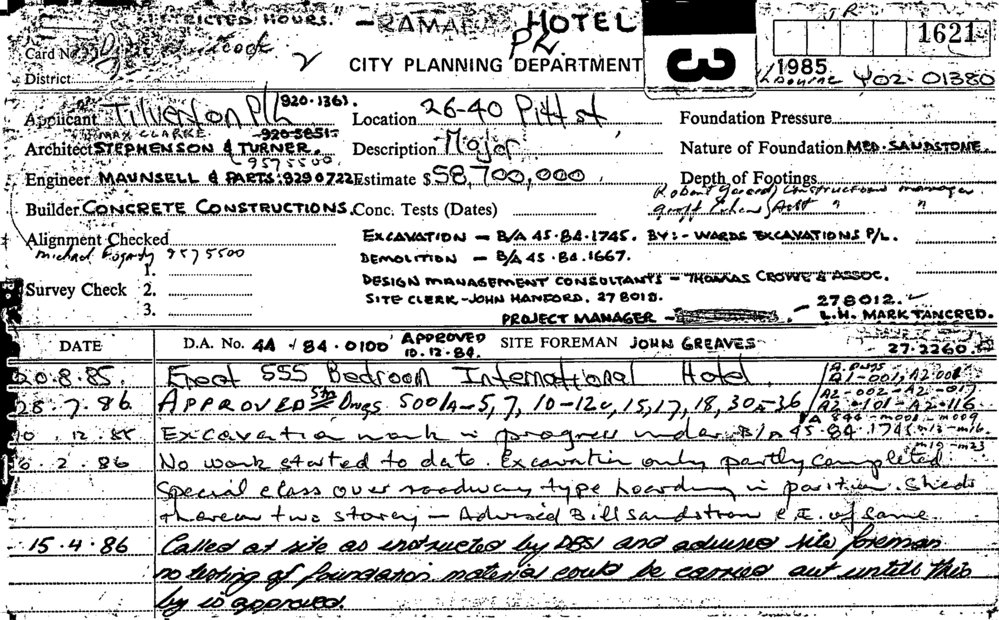 RESTRICTED HOURS. - RAMADA HOTEL
P/L.
JR
1621
3
Card No.
2
CITY PLANNING DEPARTMENT
1985
Y02-01380
District
Applicant Tilverton P/L 920.1361.
Location 26-40 Pitt st
Foundation Pressure
MAX CLARKE -920-5851-
Architect STEPHENSON & TURNER.
Description Major
Nature of Foundation MED. SANDSTONE.
957 5500
Engineer MAUNSELL & PARTS. 9290722
Estimate $ 58,700,000
Depth of Footings
Constructions manager
Builder CONCRETE CONSTRUCTIONS.
Conc. Tests (Dates)
Geoff " "
Alignment Checked
EXCAVATION - B/A 45.84.1745. BY:- WARDS EXCAVATIONS P/L.
Michael Fogarty 957 5500
DEMOLITION - B/A 45.84.1667.
1.
DESIGN MANAGEMENT CONSULTANTS - THOMAS CROWE & ASSOC.
Survey Check 2.
SITE CLERK - JOHN HANFORD. 278012.
3.
278012.
PROJECT MANAGER - L.H. MARK TANCRED.
DATE
D.A. No. 44/84.0100 APPROVED 10.12.84.
SITE FOREMAN JOHN GREAVES
27.2260
20.8.85. Erect 555 Bedroom International Hotel
A2-002-A2-017
28.7.86. APPROVED Stn Dwgs 500/A-5, 7, 10-12c, 15, 17, 18, 30A-36
A2-101-A2-116
m001-m009
10.12.85 Excavation work in progress under B/A 45.84.1745
m13-m16.
m19-m23
6.2.86 No work started to date. Excavation only partly completed
Special class over roadway type hoarding in position. Sheds
thereon two storey - Advised Bill Sandstrom C.I. of same
15.4.86 Called at site as instructed by DBSI and advised site foreman
no testing of foundation material could be carried out untill this
by is approved.